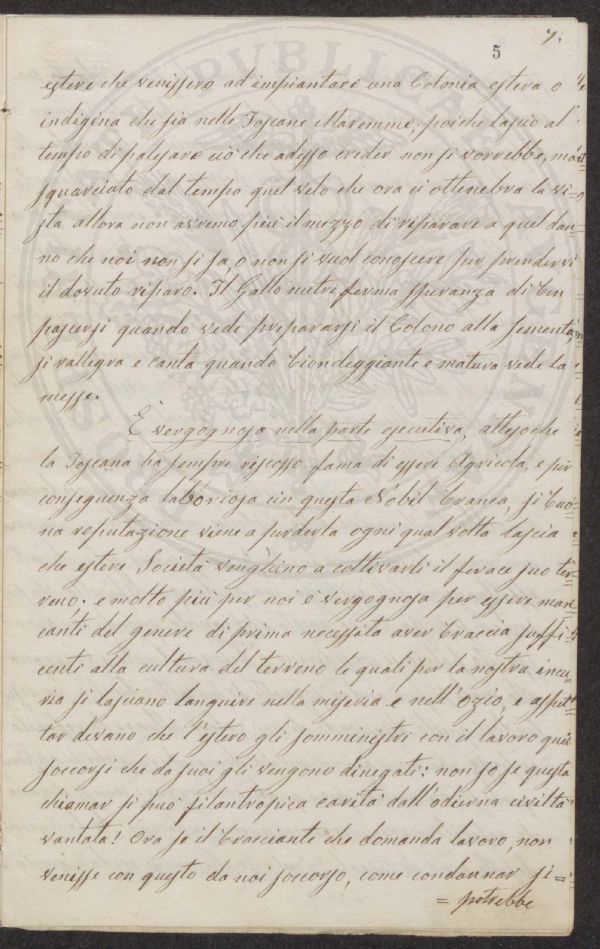 7.
5
estere che venissero ad impiantare una Colonia estera o
indigina che sia nelle Toscane Maremme; poichè lascio al
tempo di palesare ciò che adesso creder non si vorrebbe, ma
squarciato dal tempo quel velo che ora ci ottenebra la vi=
sta allora non avremo più il mezzo di riparare a quel dan=
no che noi non si sa o non si vuol conoscere per prendervi
il dovuto riparo. Il Gallo nutre ferma speranza di ben
pascersi quando vede prepararsi il Colono alla sementa,
si rallegra e Canta quando biondeggiante e matura vede la
messe.
È vergognoso nella parte esecutiva, attesoche
la Toscana ha sempre riscosso fama di essere Agricola, e per
conseguenza laboriosa in questa Nobil branca, si buo=
na reputazione viene a perderla ogni qual volta lascia
che estere Società venghino a coltivarli il ferace suo ter=
reno; e molto più per noi è vergognoso per essere man=
canti del genere di prima necessita aver braccia suffi=
centi alla cultura del terreno le quali per la nostra incu=
ria si lasciano languire nella miseria e nell'ozio, e aspet=
tar devano che l'estero gli somministri con il lavoro quei
soccorsi che da suoi gli vengono dinegati: non so se questa
chiamar si può filantropica carità dall'odierna civiltà
vantata! Ora se il bracciante che domanda lavoro, non
venisse con questo da noi soccorso, come condannar si=
= potrebbe